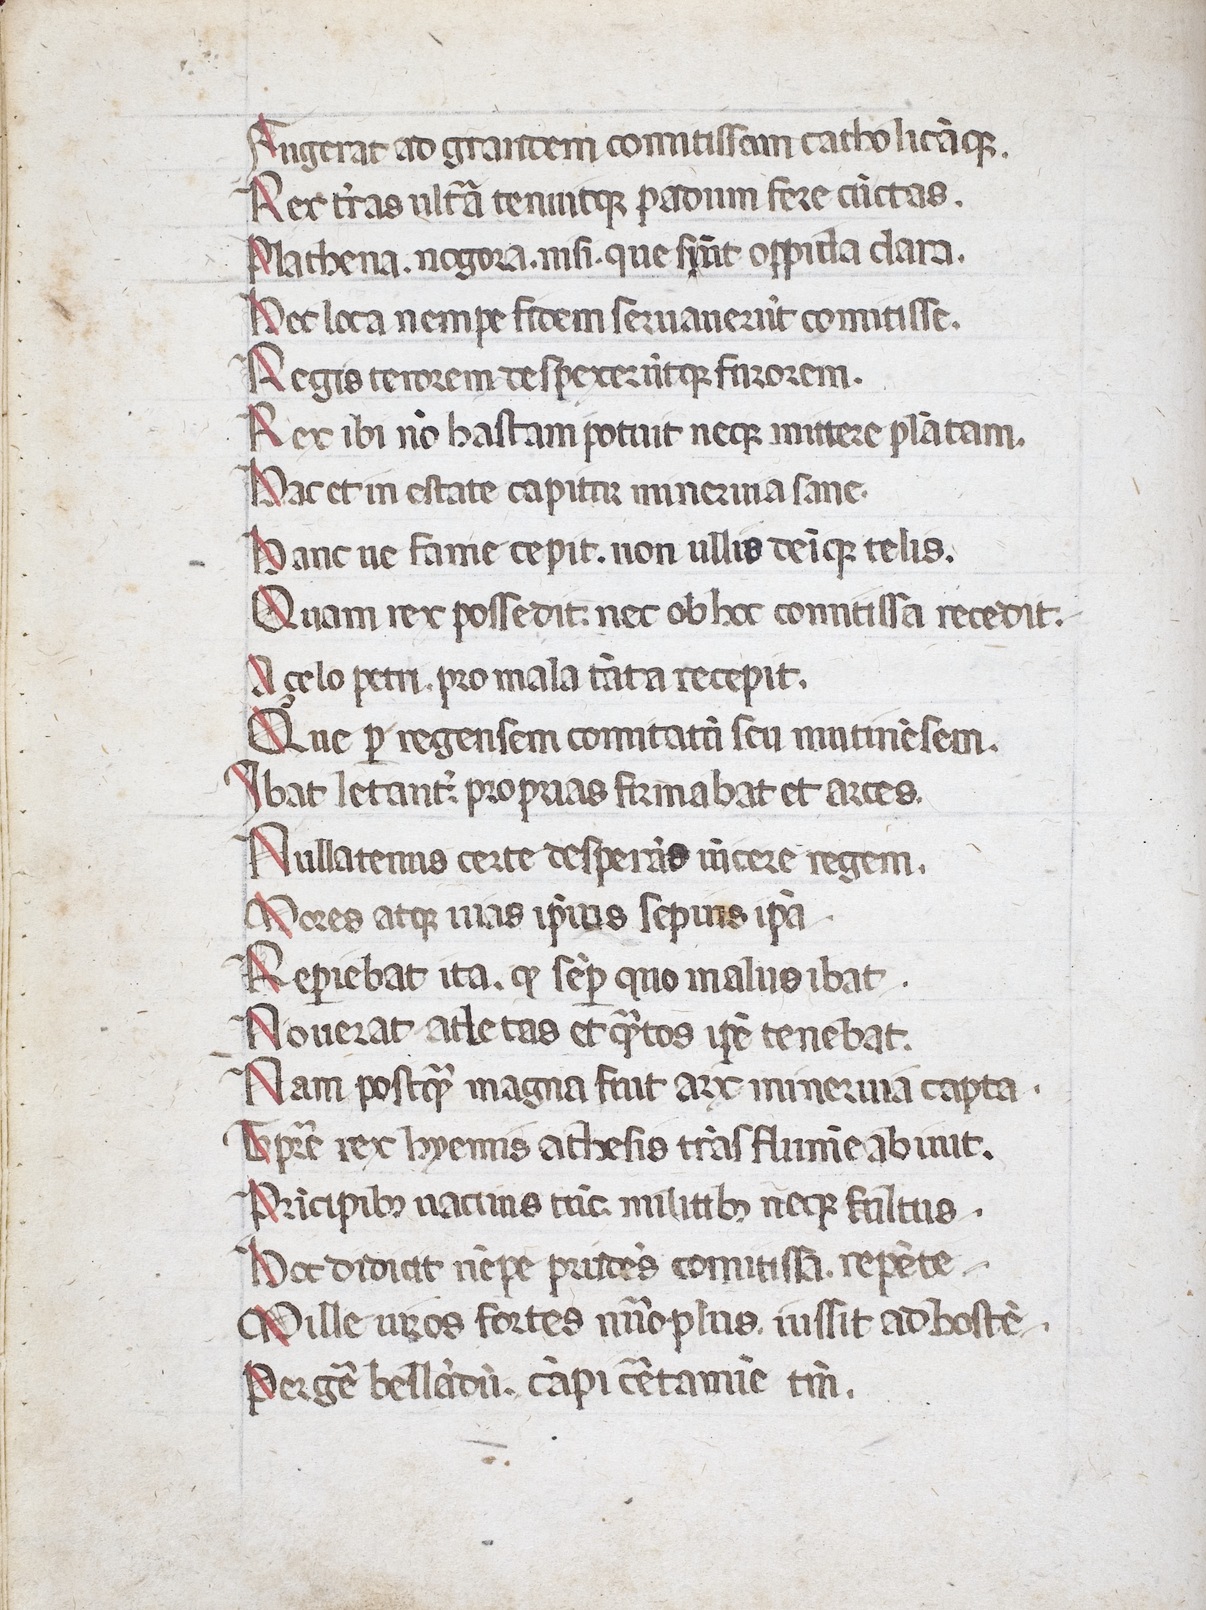 Fugerat ad grandem comitissam catholicāq;.
Rex tr̄as ultrā tenuitq; padum fere cūctas.
Plathena. nogora. nisi. que sūnt oppida clara.
Hec loca nempe fidem seruauerūt comitisse.
Regis terorem despexerūtq; furorem.
Rex ibi nō hastam potuit neq; mittere plātam.
Hac et in estate capitur mineruia sane.
Hanc ue fame cepit. non ullis deīq; telis.
Quam rex possedit: nec ob hoc comitissa recedit.
A çelo petri. pro mala tāta recepit.
Que ꝑ regensem comitatū seu mutinēsem.
Ibat letantr̄: proprias firmabat et arces.
Nullatenus certe desperās uīcere regem.
Mores atq; uias ip̄ius sepius ip̄a.
Reꝑiebat ita. ꝙ sēꝑ quo malus ibat.
Nouerat atletas et q̄tos ip̄e tenebat.
Nam postq̄ magna fuit arx mineruia capta.
Tp̄re rex hyemis athesis trās flumīe abiuit.
Prīcipibꝫ uacuus tūc. militibꝫ neq; fultus.
Hoc didicit nēpe prudēs comitissa. repēte
Mille uiros fortes īmo plus. iussit ad hostē.
Pergē bellādū. cāpi c̄tamīe tm̄.